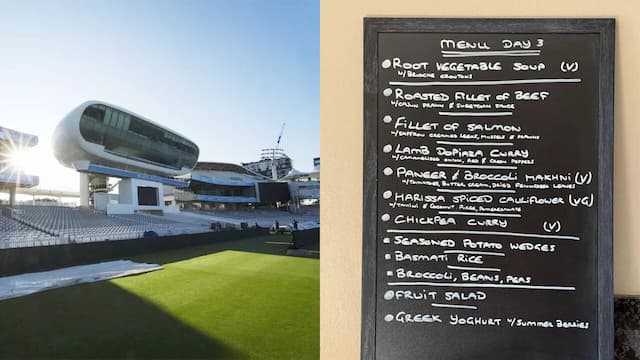 MENU DAY 3
ROOT VEGETABLE SOUP (V)
W/BRIOCHE CROUTONS
ROASTED FILLET OF BEEF
W/CAJUN PRAWN & SWEETCORN SAUCE
FILLET OF SALMON
W/SAFFRON CREAMED LEEKS, MUSSELS & PRAWNS
LAMB DOPIAZA CURRY
W/CARAMELISED ONION, RED & GREEN PEPPERS
PANEER & BROCCOLI MAKHNI (V)
W/TOMATOES, BUTTER CREAM, DRIED FENUGREEK LEAVES
HARISSA SPICED CAULIFLOWER (VG)
W/TAHINI & COCONUT PUREE, POMEGRANATE
CHICKPEA CURRY (V)
SEASONED POTATO WEDGES
BASMATI RICE
BROCCOLI, BEANS, PEAS
FRUIT SALAD
GREEK YOGHURT W/SUMMER BERRIES